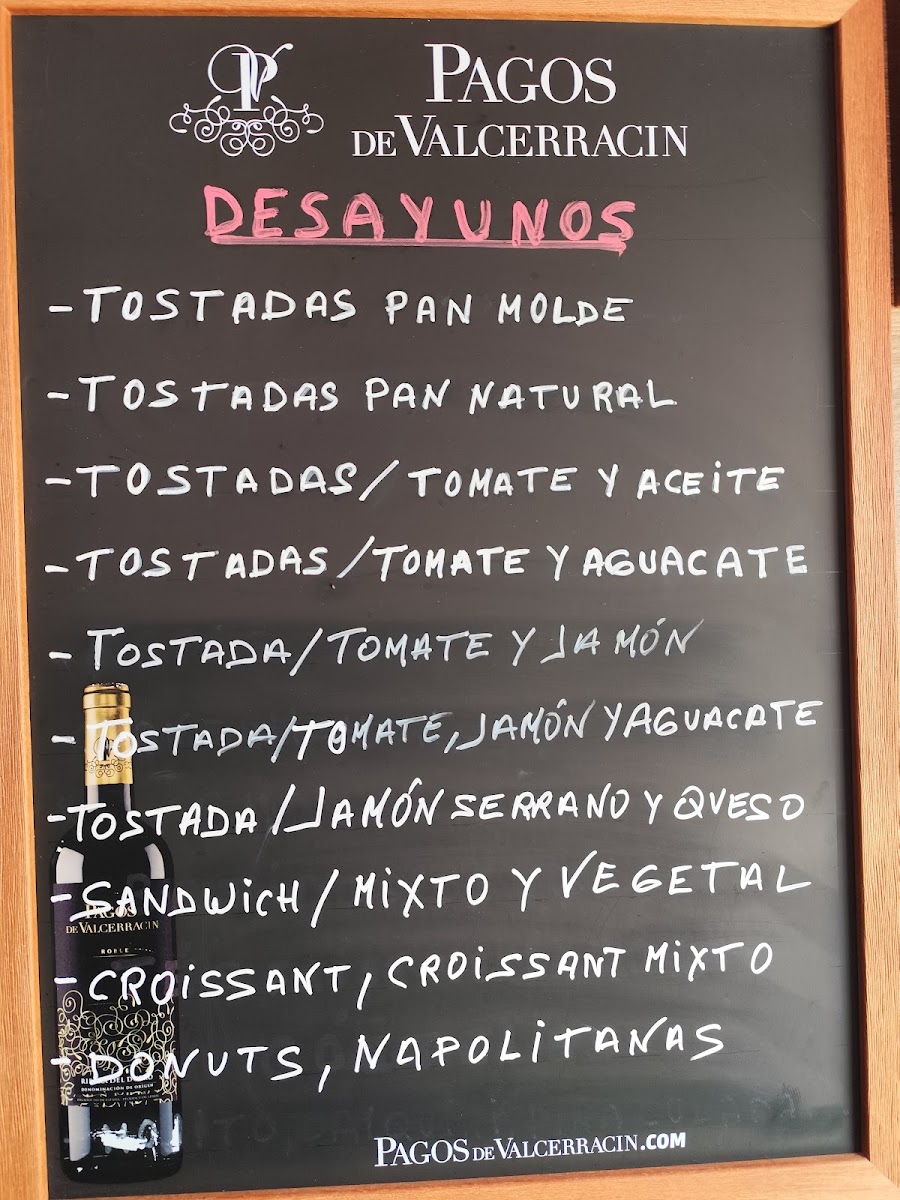 PAGOS
DE VALCERRACIN
DESAYUNOS
- TOSTADAS PAN MOLDE
- TOSTADAS PAN NATURAL
- TOSTADAS / TOMATE Y ACEITE
- TOSTADAS / TOMATE Y AGUACATE
- TOSTADA / TOMATE Y JAMÓN
- TOSTADA / TOMATE, JAMÓN Y AGUACATE
- TOSTADA / JAMÓN SERRANO Y QUESO
- SANDWICH / MIXTO Y VEGETAL
PAGOS
DE VALCERRACIN
ROBLE
- CROISSANT, CROISSANT MIXTO
- DONUTS, NAPOLITANAS
DENOMINACIÓN DE ORIGEN
PAGOS DE VALCERRACIN.COM